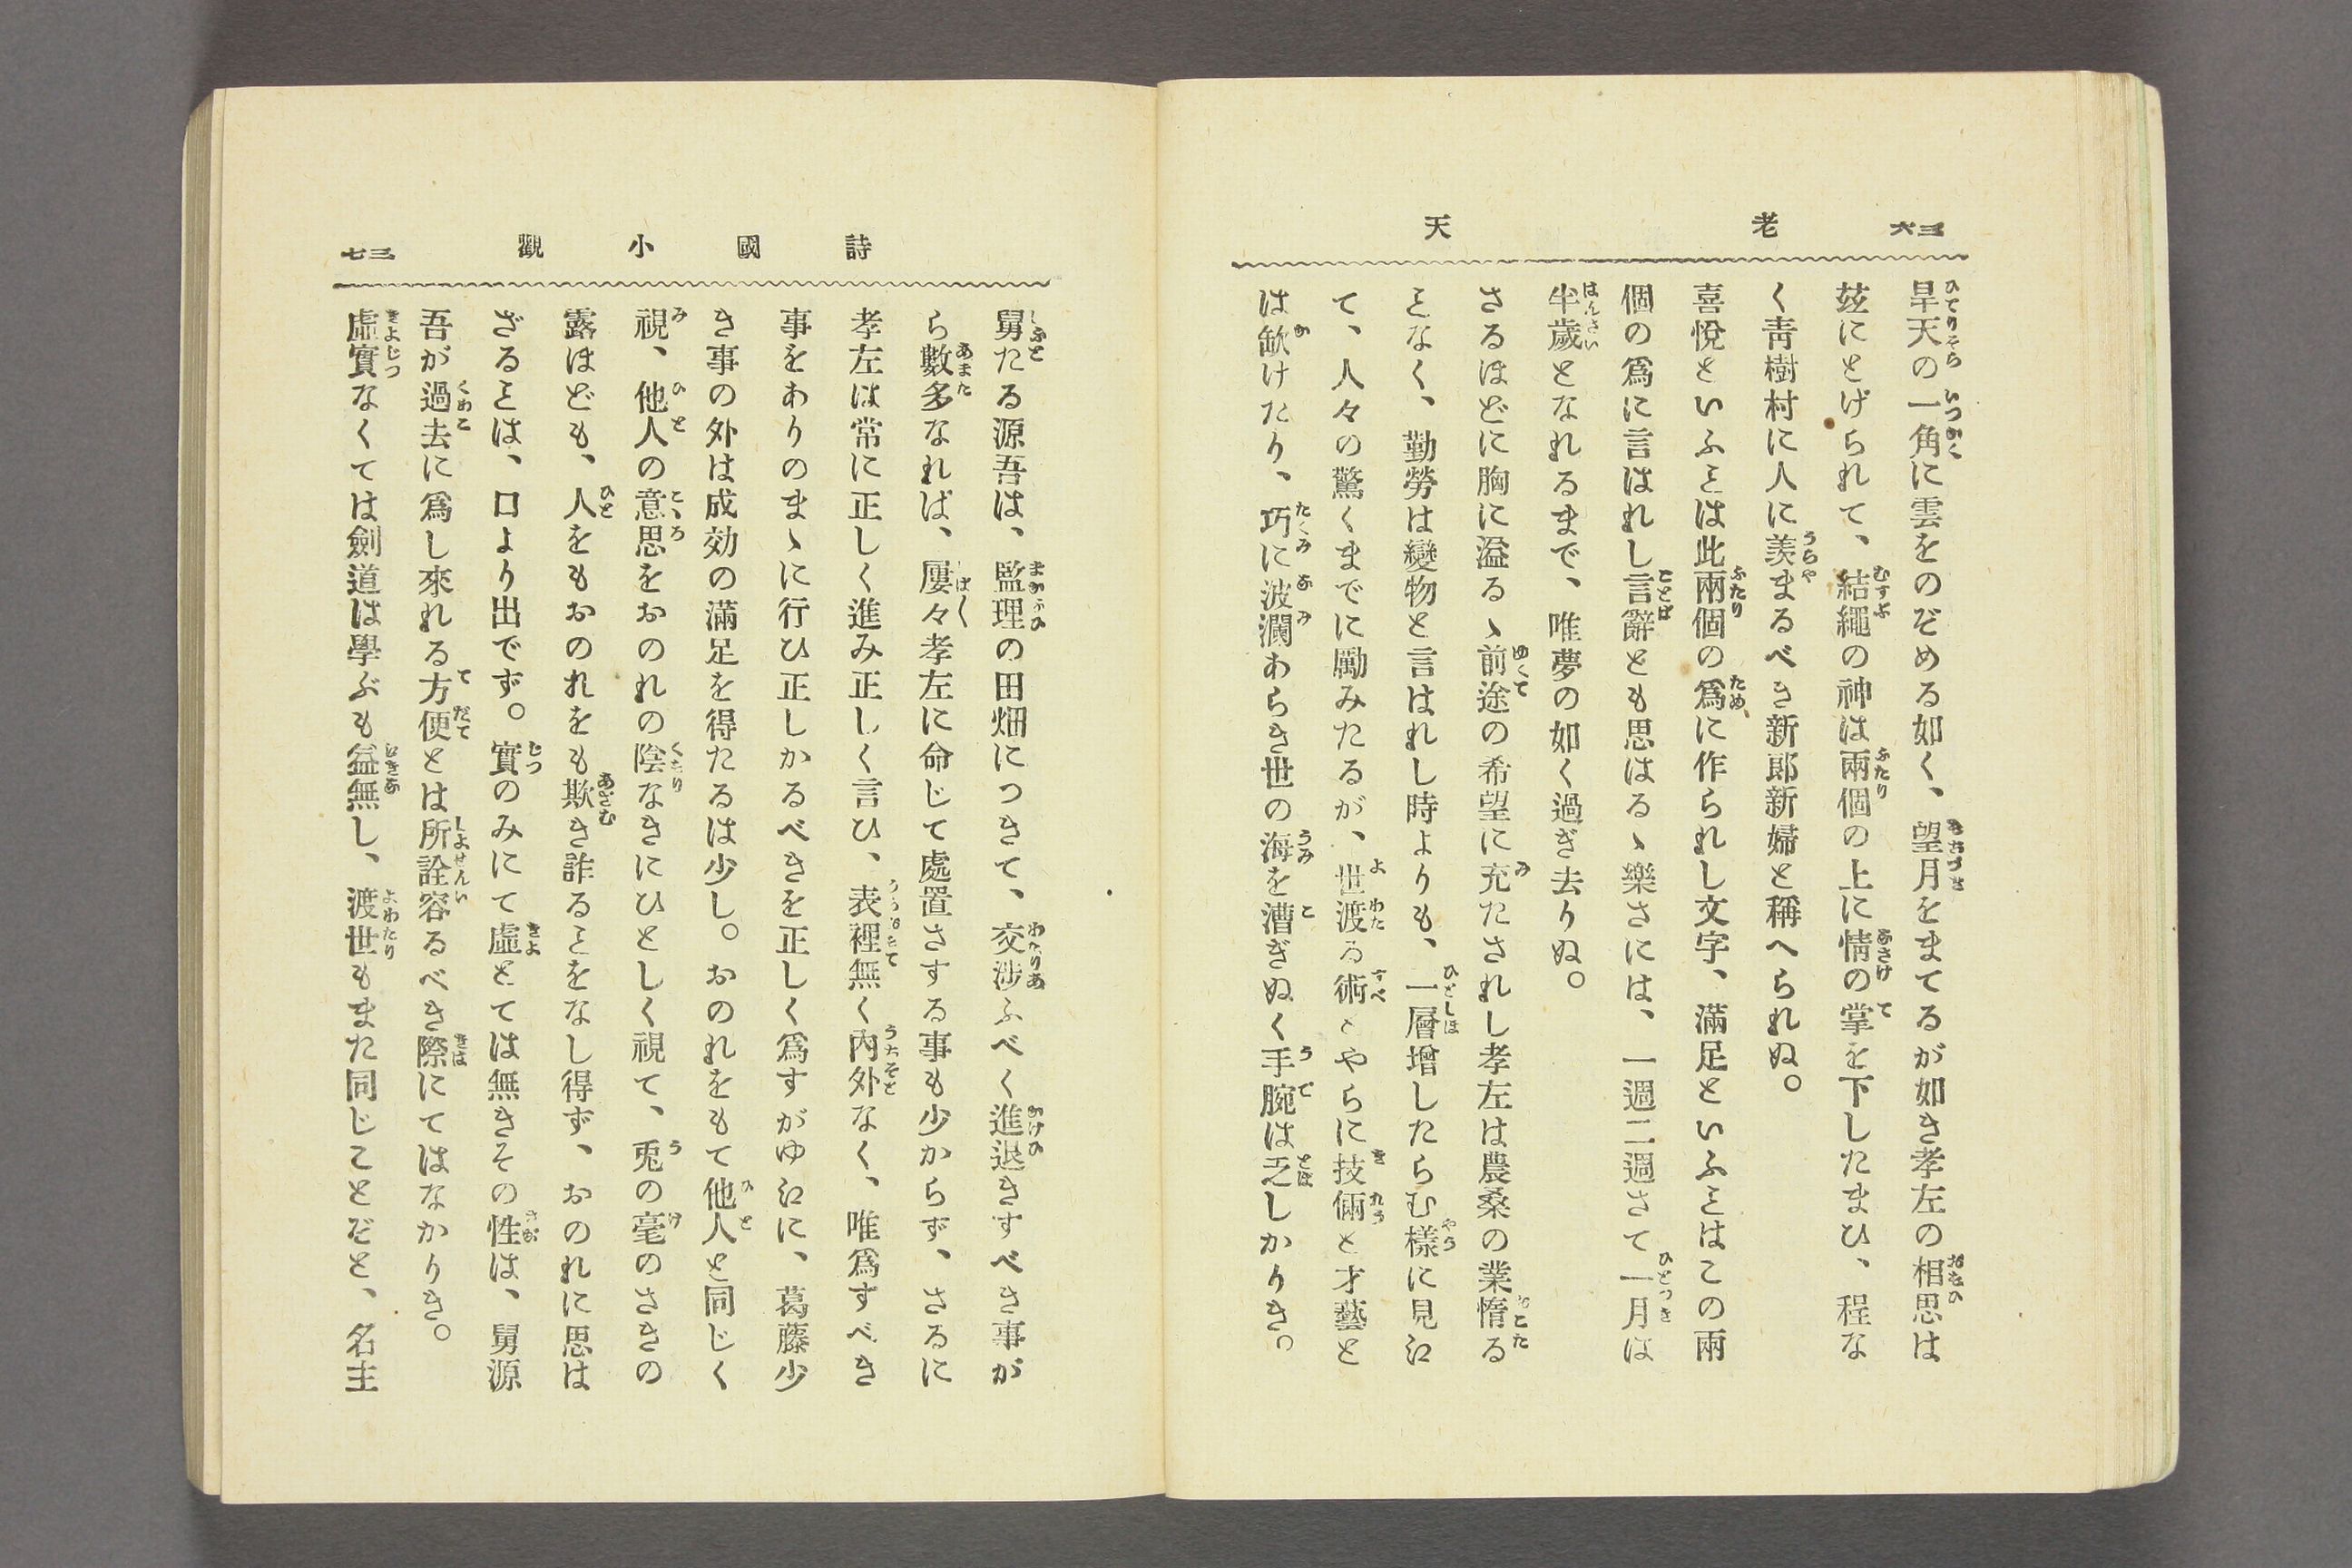 老天
三六
旱天の一角に雲をのぞめる如く、望月をまてるが如き孝左の相思は
茲にとげられて、結繩の神は兩個の上に情の掌を下したまひ、程な
く靑樹村に人に羨まるべき新郞新婦と稱へられぬ。
喜悅といふことは此兩個の爲に作られし文字、滿足といふことはこの兩
個の爲に言はれし言辭とも思はるゝ樂さには、一週二週さて一月は
半歲となれるまで、唯夢の如く過ぎ去りぬ。
さるほどに胸に溢るゝ前途の希望に充たされし孝左は農桑の業惰る
ことなく、勤勞は變物と言はれし時よりも、一層增したらむ樣に見江
て、人々の驚くまでに勵みたるが、世渡る術とやらに技倆と才藝と
は歉けたり、巧に波瀾わらき世の海を漕ぎぬく手腕は乏しかりき。
詩國小觀
三七
舅たる源吾は、監理の田畑につきて、交涉ふべく進退きすべき事が
ら數多なれば、屢々孝左に命じて處置さする事も少からず、さるに
孝左は常に正しく進み正しく言ひ、表裡無く內外なく、唯爲すべき
事をありのまゝに行ひ正しかるべきを正しく爲すがゆ江に、葛藤少
き事の外は成効の滿足を得たるは少し。おのれをもて他人と同じく
視、他人の意思をおのれの陰なきにひとしく視て、兎の毫のさきの
露ほども、人をもおのれをも欺き詐ることをなし得ず、おのれに思は
ざることは、口より出でず。實のみにて虛とては無きその性は、舅源
吾が過去に爲し來れる方便とは所詮容るべき際にてはなかりき。
虛實なくては劍道は學ぶも益無し、渡世もまた同じことぞと、名主